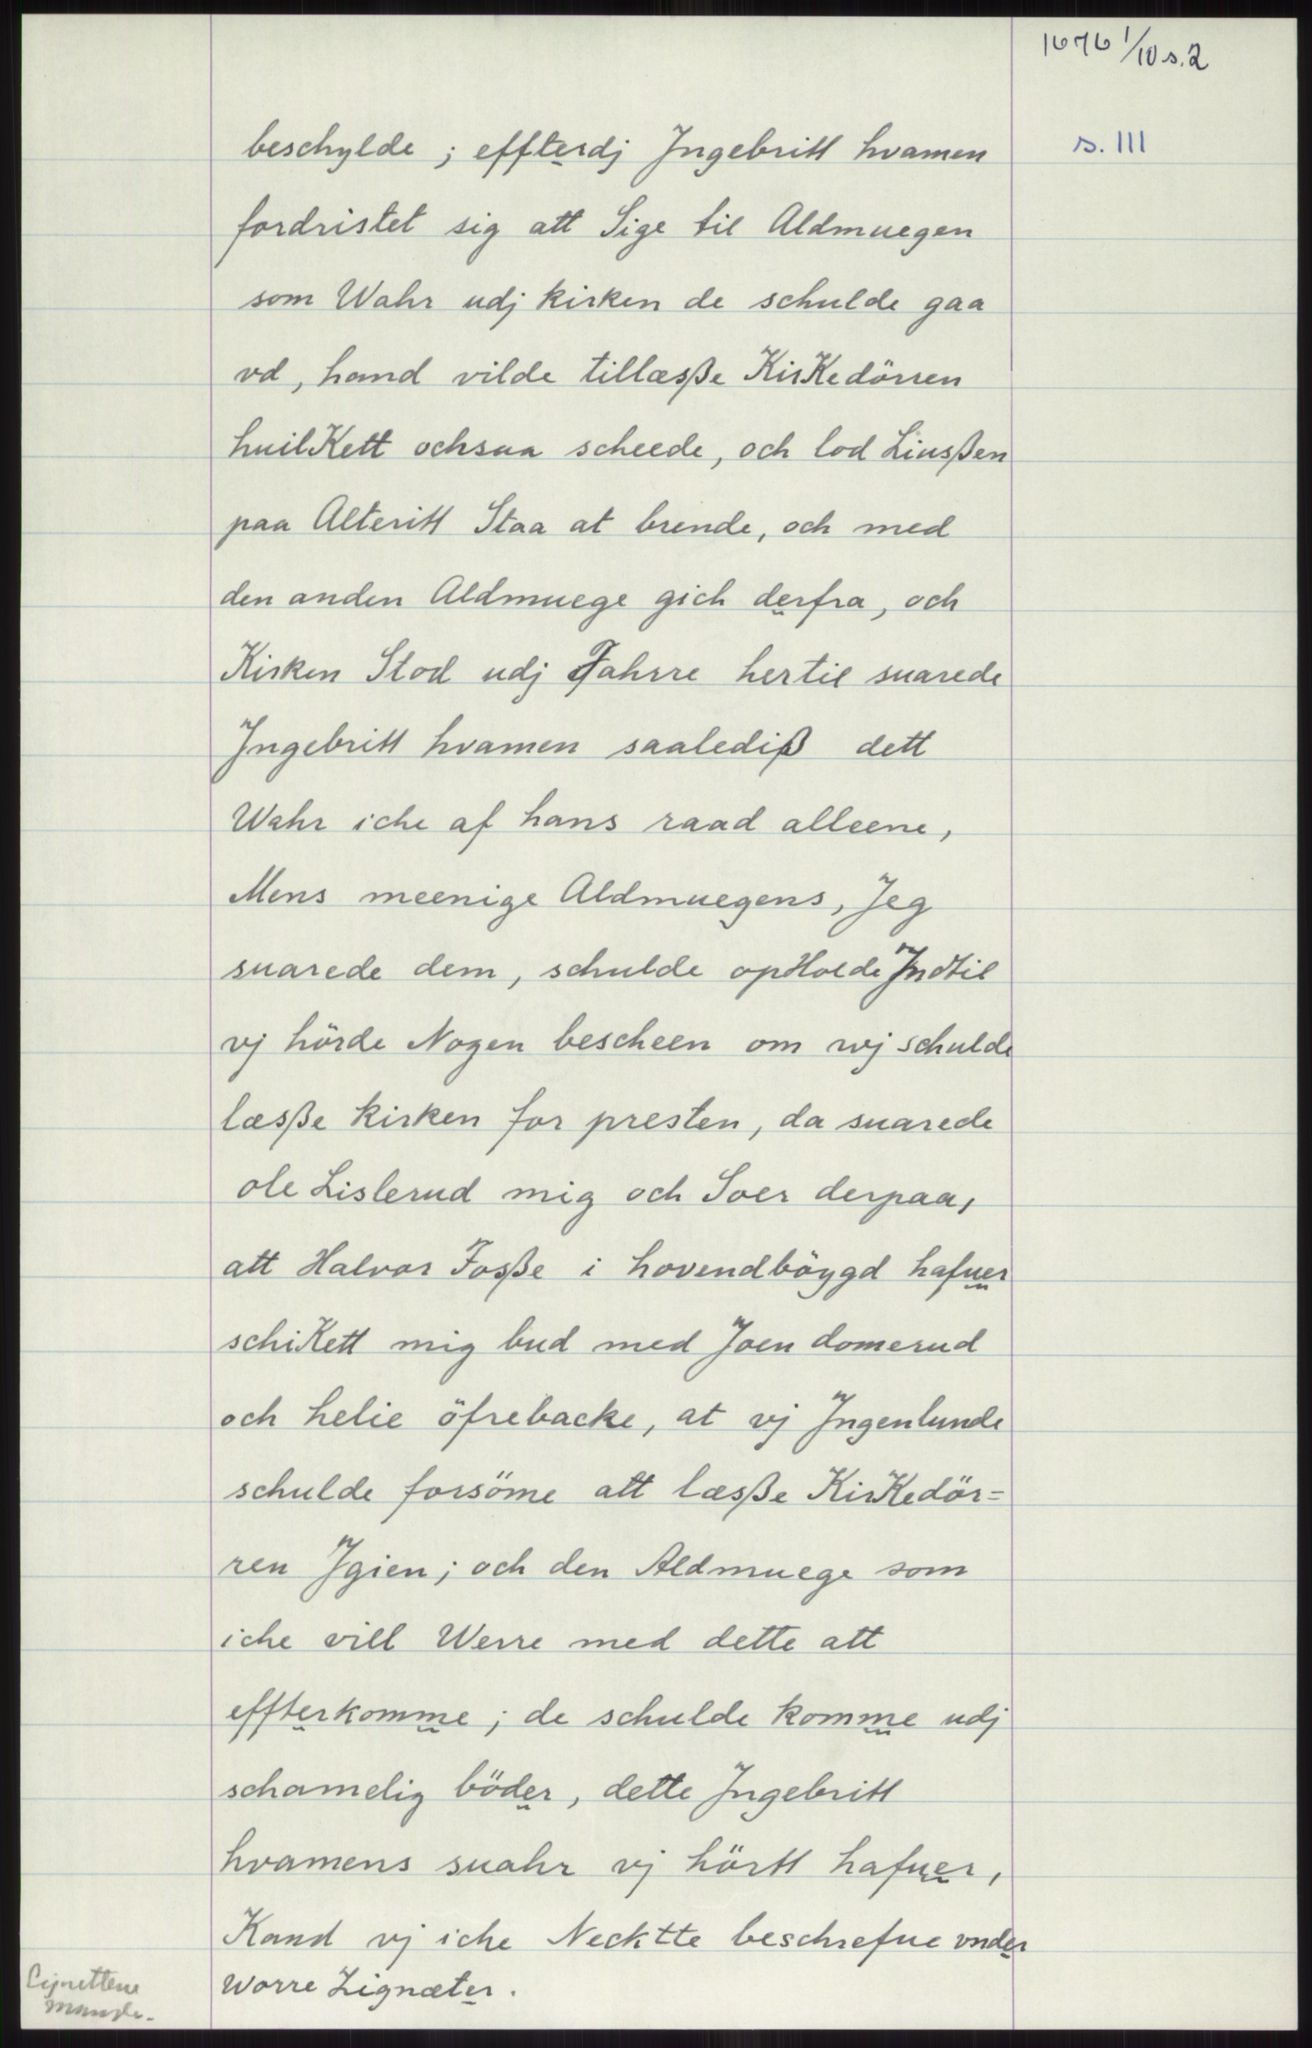 1676 1/10 s.2
s. 111
beschylde ; effterdj Jngebritt hvamen
fordristet sig att Sige til Aldmuegen
som Wahr udj kirken de schulde gaa
vd, hand vilde tillæsße KirKedörren
huilKett ochsaa scheede, och lod Liusßen
paa Alteritt Staa at brende, och med
den anden Aldmuege gich derfra, och
Kirken Stod udj Fahrre hertil suarede
Jngebritt hvamen saalediß dett
Wahr iche af hans raad alleene,
Mens meenige Aldmuegens, Jeg
suarede dem, schulde opHolde Jndtil
vj hörde Nogen bescheen om wj schulde
læsße kirken for presten, da suarede
ole Lislerud mig och Soer derpaa,
att Halvor Fosße i hovendböygd hafuer
schiKett mig bud med Joen domerud
och helie öfrebacke, at vj Jngenlunde
schulde forsöme att læsße KirKedör=
ren Jgien; och den Aldmuege som
iche vill Werre med dette att
effterkomme ; de schulde komme udj
schamelig böder, dette Jngebritt
hvamens suahr vj hörtt hafuer,
Kand vj iche Necktte beschrefue vnder
Worre Zignæter.
mangler.